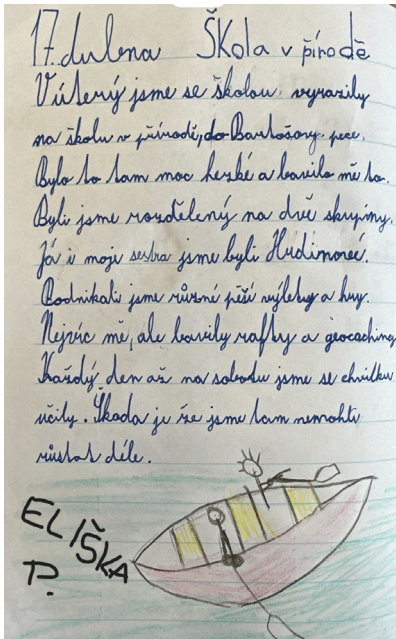 17. dubna Škola v pírodě
V úterý jsme se školou vyrazily
na školu v přírodě, do Bartošovy pece.
Bylo to tam moc hezké a bavilo mě to.
Byli jsme rozdělený na dvě skupiny.
Já i moje sestra jsme byli
Podnikali jsme různé pěší výlety a hry.
Nejvíc mě, ale bavily rafty a geocaching
Každý den až na sobotu jsme se chvilku
učily. Škoda je že jsme tam nemohli
zůstat déle.
ELIŠKA
P.